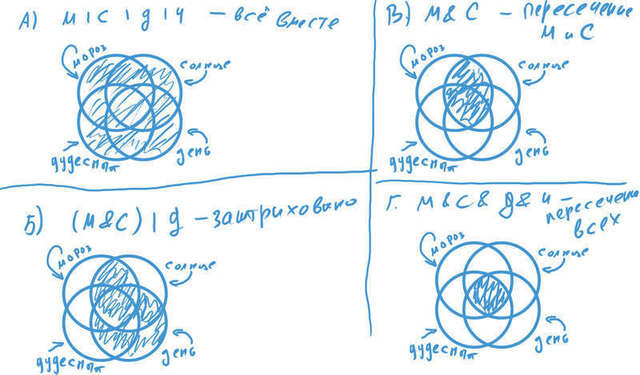 А) М | С | д | Ч — всё вместе
мороз
солнце
чудесный
день
В) М & С — пересечение
М и С
мороз
солнце
чудесный
день
Б) (М&С) | д — заштриховано
мороз
солнце
чудесный
день
Г. М & С & д & ч —
пересечение
всех
мороз
солнце
чудесный
день